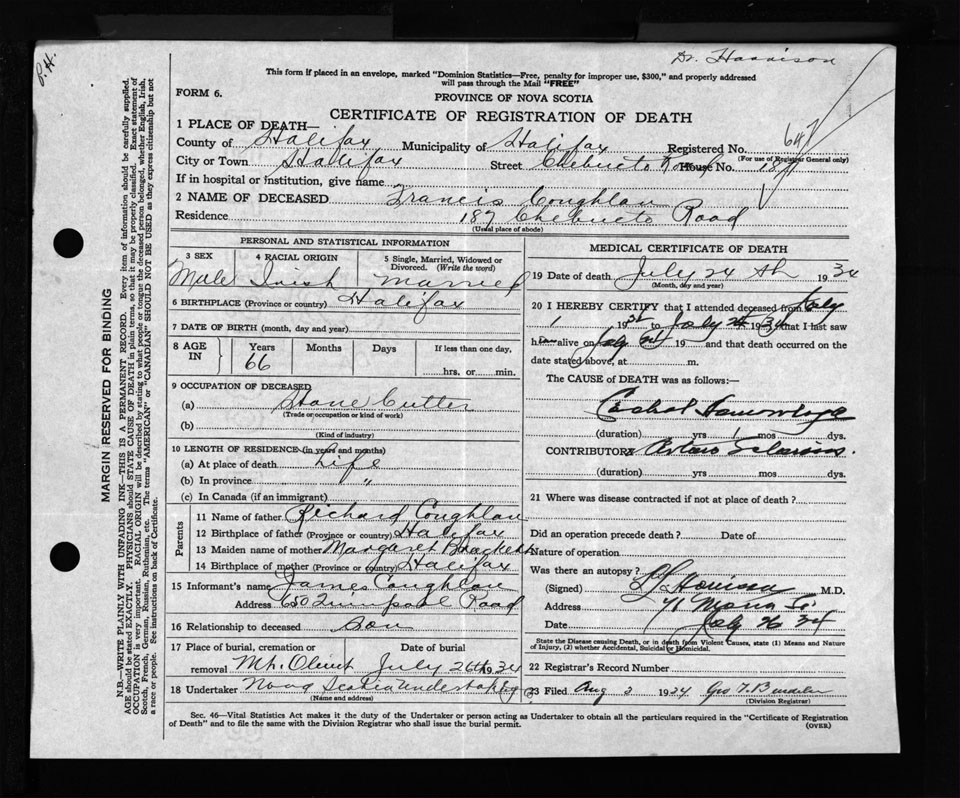 P.H.
Dr. Harrison
This form if placed in an envelope, marked "Dominion Statistics—Free, penalty for improper use, $300," and properly addressed
will pass through the Mail "FREE"
FORM 6.
PROVINCE OF NOVA SCOTIA
CERTIFICATE OF REGISTRATION OF DEATH
647
1 PLACE OF DEATH—
County of Halifax Municipality of Halifax Registered No.
(For use of Registrar General only)
City or Town Halifax Street Chebucto Road House No. 187
If in hospital or institution, give name
2 NAME OF DECEASED Francis Coughlan
Residence 187 Chebucto Road
(Usual place of abode)
PERSONAL AND STATISTICAL INFORMATION
3 SEX 4 RACIAL ORIGIN 5 Single, Married, Widowed or
Divorced. (Write the word)
Male Irish Married
6 BIRTHPLACE (Province or country) Halifax
7 DATE OF BIRTH (month, day and year)
8 AGE IN Years Months Days If less than one day,
66 hrs. or min.
9 OCCUPATION OF DECEASED
(a) Stone Cutter
(Trade or occupation or kind of work)
(b)
(Kind of industry)
10 LENGTH OF RESIDENCE (in years and months)
(a) At place of death Life
(b) In province "
(c) In Canada (if an immigrant)
Parents
11 Name of father Richard Coughlan
12 Birthplace of father (Province or country) Halifax
13 Maiden name of mother Margaret Brackett
14 Birthplace of mother (Province or country) Halifax
15 Informant's name James Coughlan
Address 650 Quinpool Road
16 Relationship to deceased Son
17 Place of burial, cremation or Date of burial
removal Mt. Olivet July 26th 1934
18 Undertaker Nova Scotia Undertaking
(Name and address)
MEDICAL CERTIFICATE OF DEATH
19 Date of death July 24 th 1934
(Month, day and year)
20 I HEREBY CERTIFY that I attended deceased from July
1 19 to July 24 1934 that I last saw
h alive on July 19 and that death occurred on the
date stated above, at m.
The CAUSE of DEATH was as follows:—
Cerebral Hemorrhage
(duration) yrs 1 mos dys.
CONTRIBUTORY Arterio Sclerosis.
(duration) yrs mos dys.
21 Where was disease contracted if not at place of death?
Did an operation precede death? Date of
Nature of operation
Was there an autopsy?
(Signed) M.D.
Address 71
Date July 26 34
State the Disease causing Death, or in death from Violent Causes, state (1) Means and Nature
of Injury, (2) whether Accidental, Suicidal or Homicidal.
22 Registrar's Record Number
23 Filed Aug 2 1934 Geo
(Division Registrar)
Sec. 46—Vital Statistics Act makes it the duty of the Undertaker or person acting as Undertaker to obtain all the particulars required in the "Certificate of Registration
of Death" and to file the same with the Division Registrar who shall issue the burial permit. (OVER.)
MARGIN RESERVED FOR BINDING
N.B.—WRITE PLAINLY WITH UNFADING INK—THIS IS A PERMANENT RECORD. Every item of information should be carefully supplied.
AGE should be stated EXACTLY. PHYSICIANS should STATE CAUSE OF DEATH in plain terms, so that it may be properly classified. Exact statement of
OCCUPATION is very important. RACIAL ORIGIN will be described by stating to what people or tongue the deceased person belonged, whether English, Irish,
Scotch, French, German, Russian, Ruthenian, etc. The terms "AMERICAN" or "CANADIAN" SHOULD NOT BE USED as they express citizenship but not
a race or people. See instructions on back of Certificate.